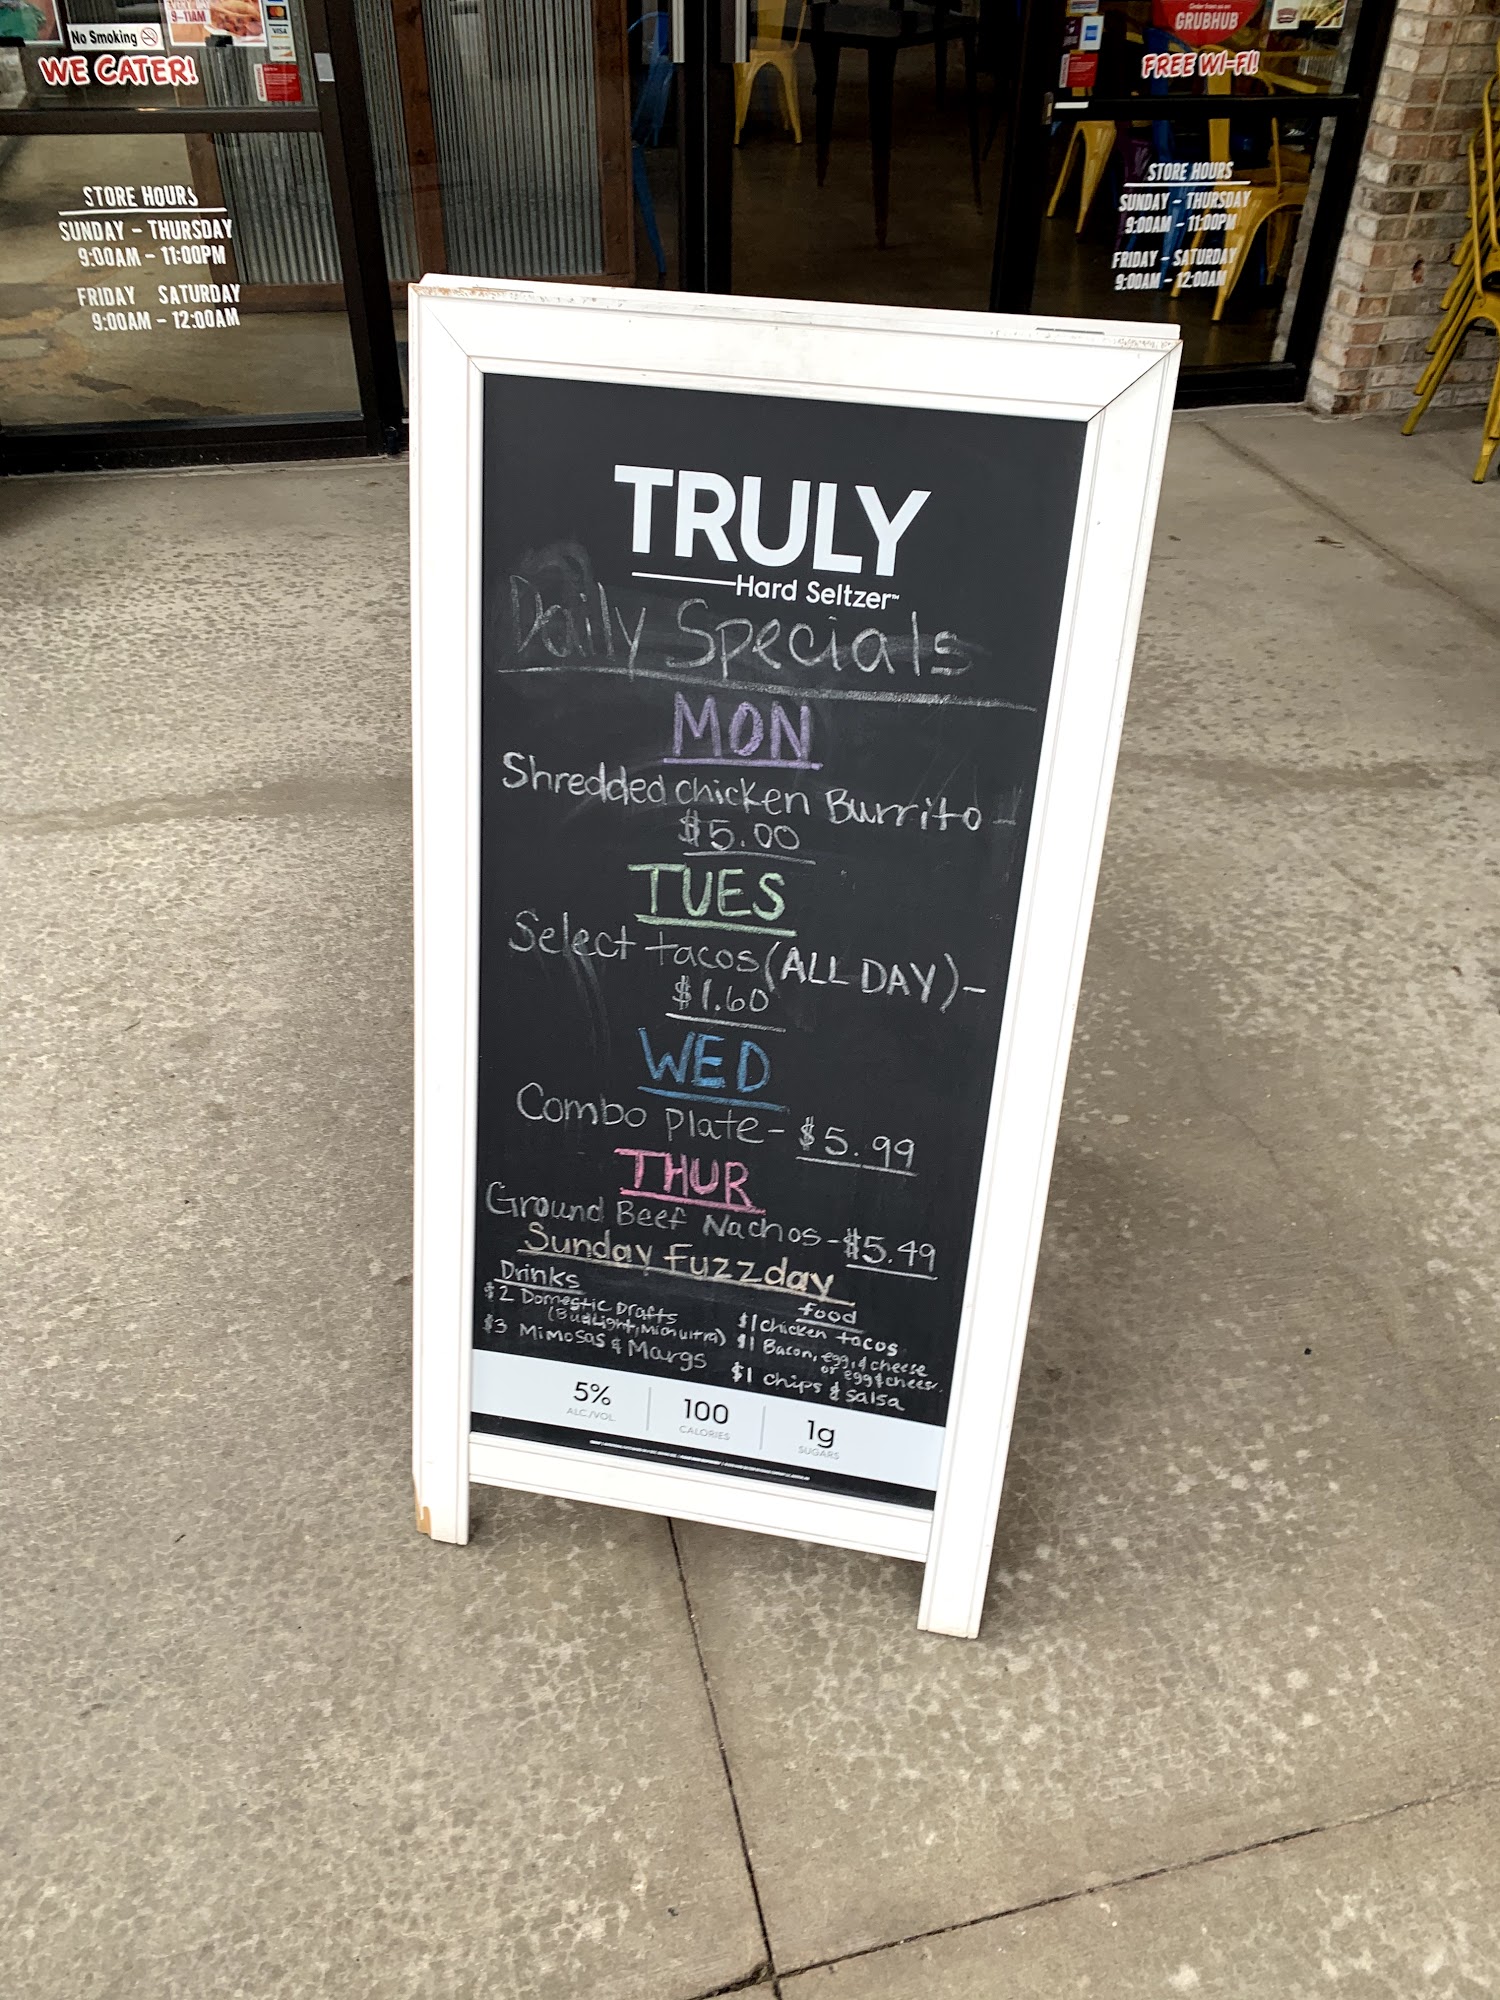 No Smoking
WE CATER!
9-11AM
VISA
GRUBHUB
FREE WI-FI!
STORE HOURS
SUNDAY - THURSDAY
9:00AM - 11:00PM
FRIDAY SATURDAY
9:00AM - 12:00AM
STORE HOURS
SUNDAY - THURSDAY
9:00AM - 11:00PM
FRIDAY - SATURDAY
9:00AM - 12:00AM
TRULY
Hard Seltzer™
Daily Specials
MON
Shredded chicken Burrito -
$5.00
TUES
Select tacos (ALL DAY) -
$1.60
WED
Combo plate - $5.99
THUR
Ground Beef Nachos - $5.49
Sunday Fuzzday
Drinks
$2 Domestic Drafts
(Budlight, Mich ultra)
$3 Mimosas & Margs
food
$1 chicken tacos
$1 Bacon, egg, & cheese
or egg & chees
$1 chips & salsa
5%
ALC/VOL
100
CALORIES
1g
SUGARS